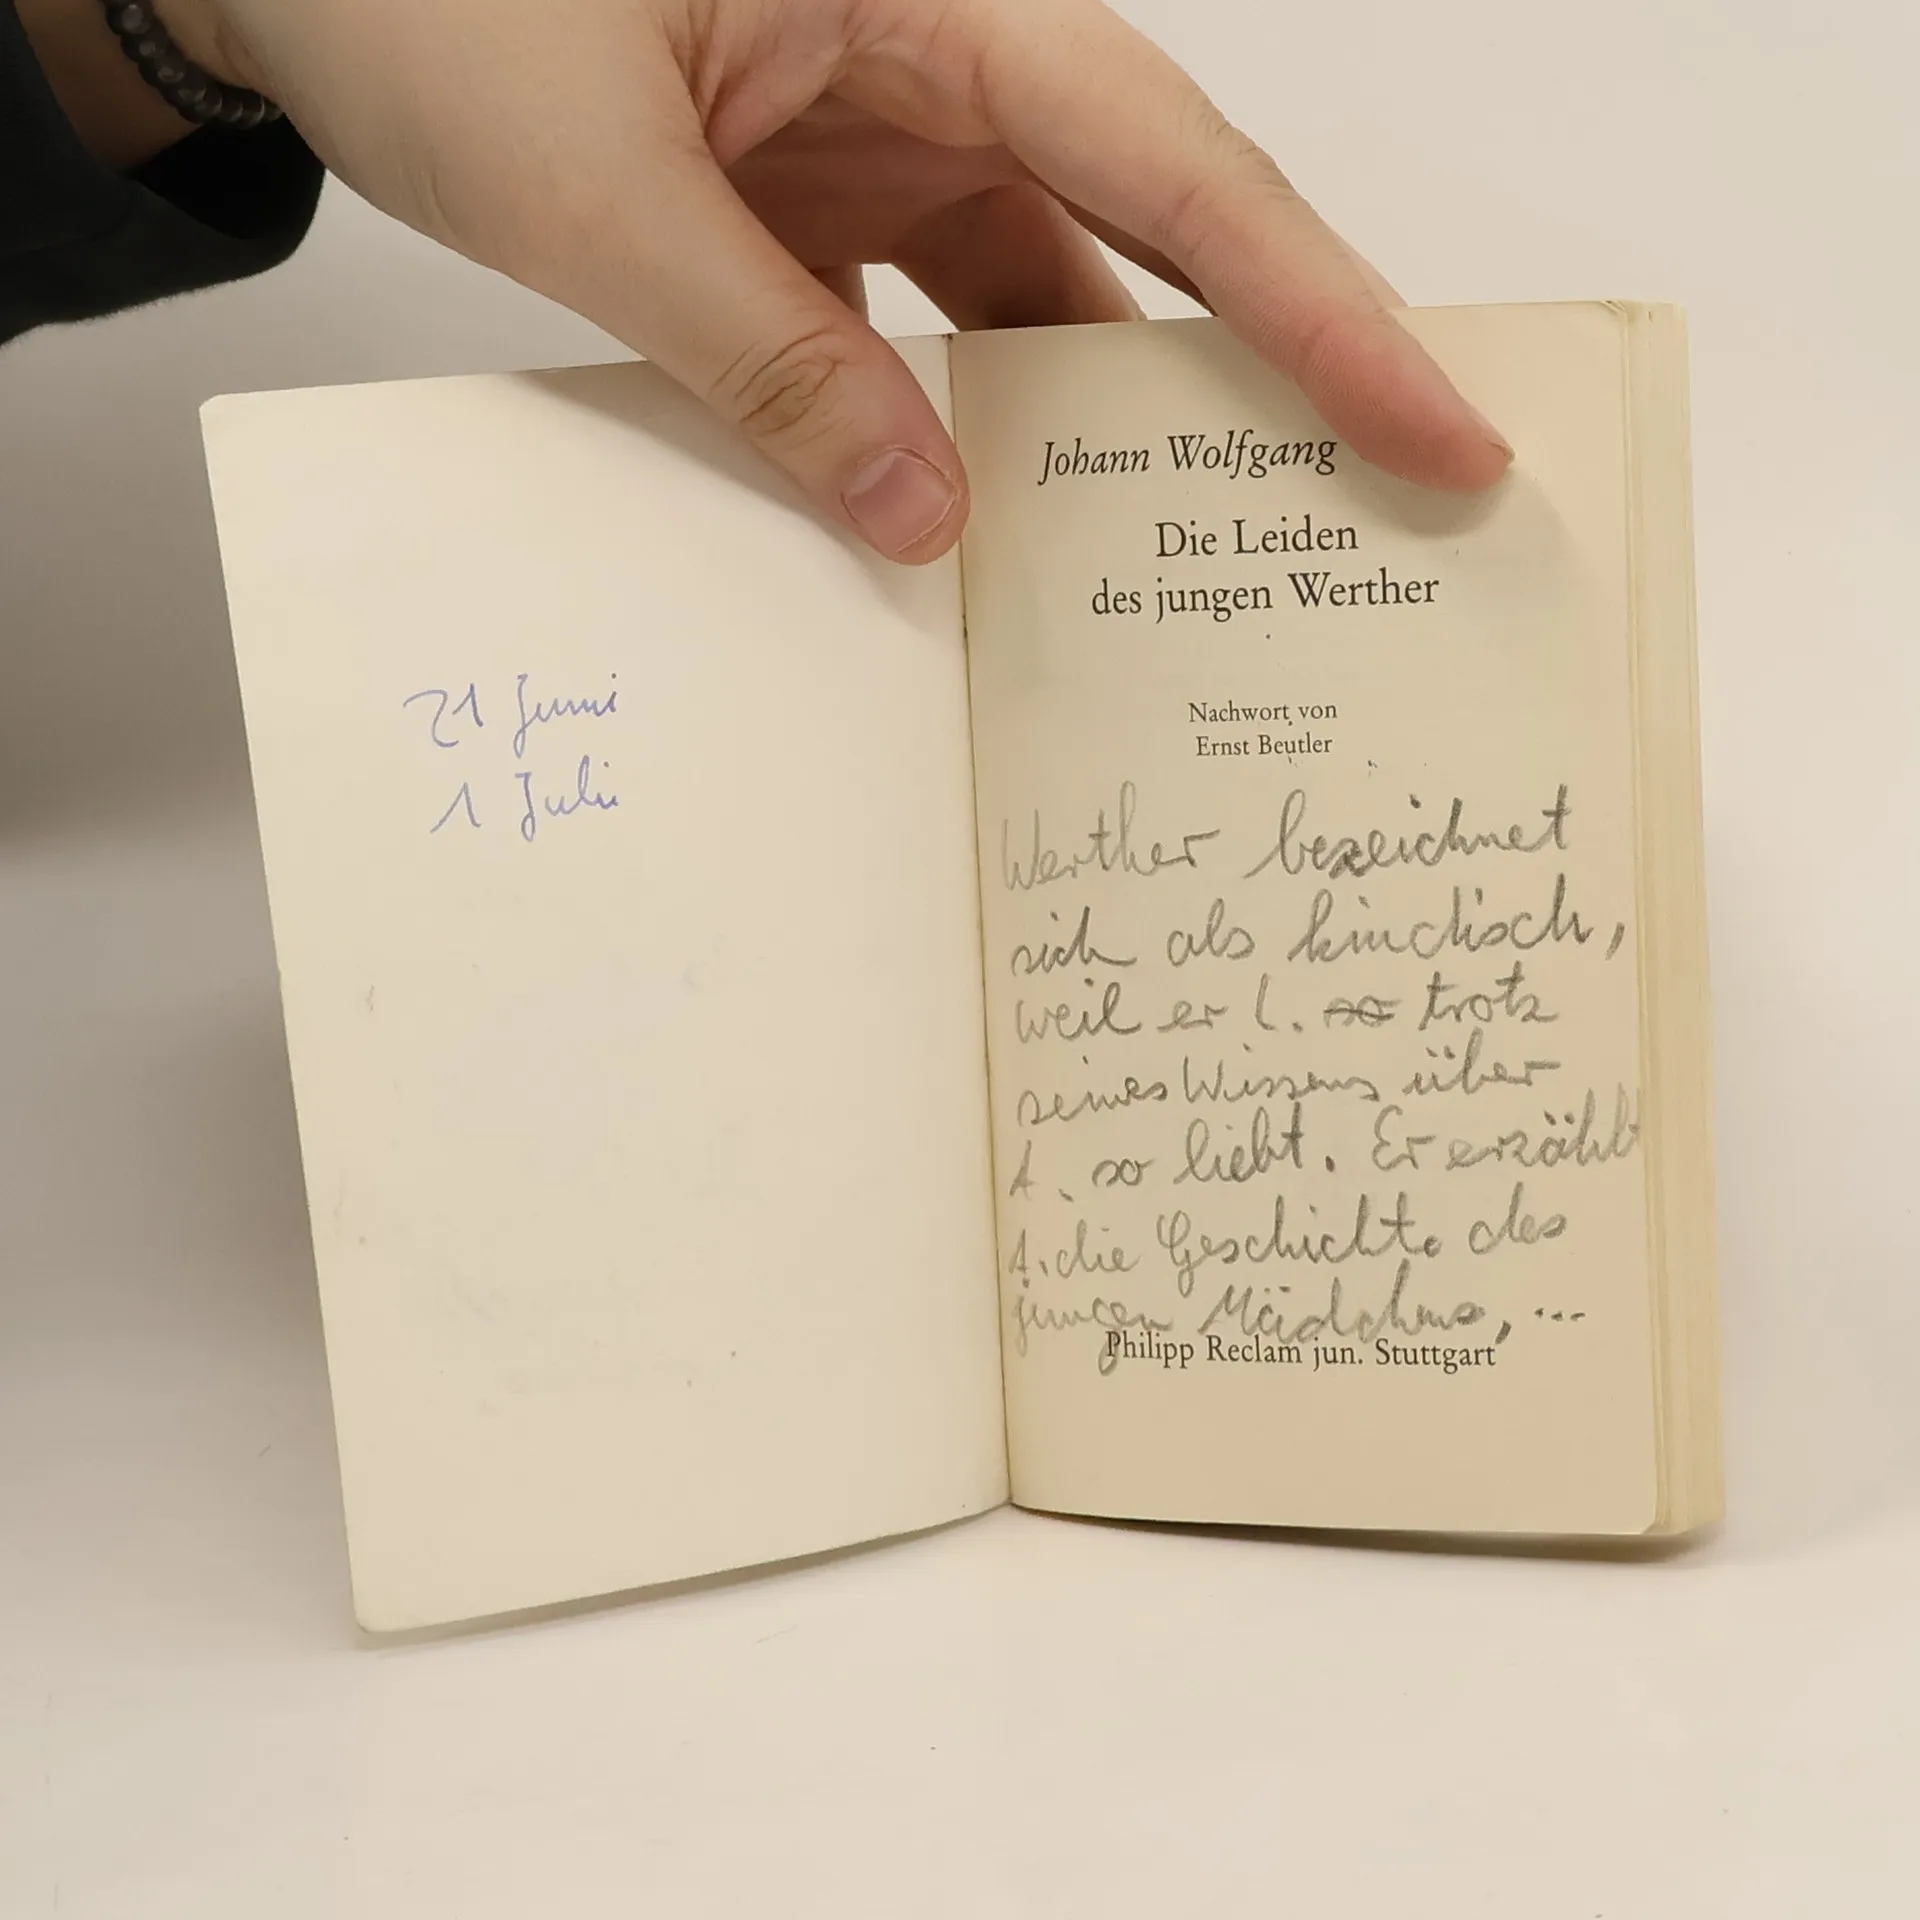 21 Juni
1 Juli
Johann Wolfgang
Die Leiden
des jungen Werther
Nachwort von
Ernst Beutler
Werther bezeichnet
sich als kindisch,
weil er L. so trotz
seines Wissens über
A. so liebt. Er erzählt
A. die Geschichte des
jungen Mädchens, ...
Philipp Reclam jun. Stuttgart